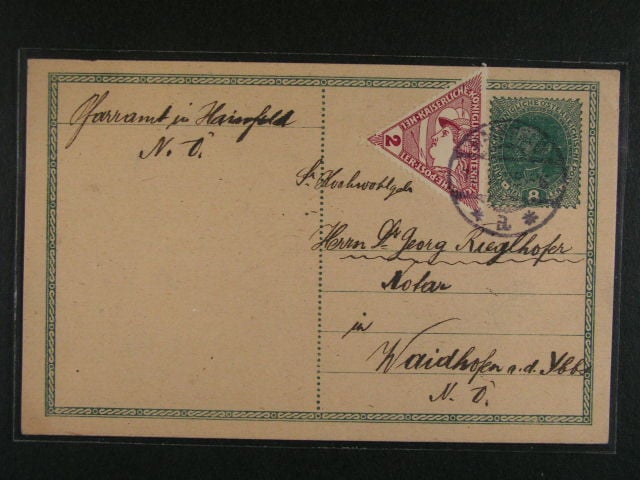 Pfarramt in Hainfeld
N. Ö.
KAISERLICHE KÖNIGLICHE
2
8
Sr. Hochwohlgeb
Herrn Dr Georg Rieglhofer
Notar
in
Waidhofen a. d. Ybbs
N. Ö.